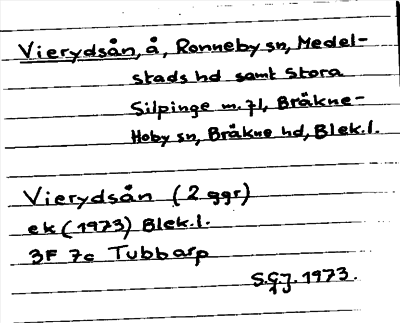 Vierydsån, å, Ronneby sn, Medel-
stads hd samt Stora
Silpinge m.fl, Bräkne-
Hoby sn, Bräkne hd, Blek.l.
Vierydsån (2 ggr)
ek (1973) Blek.l.
3F 7c Tubbarp
S.G.J. 1973.